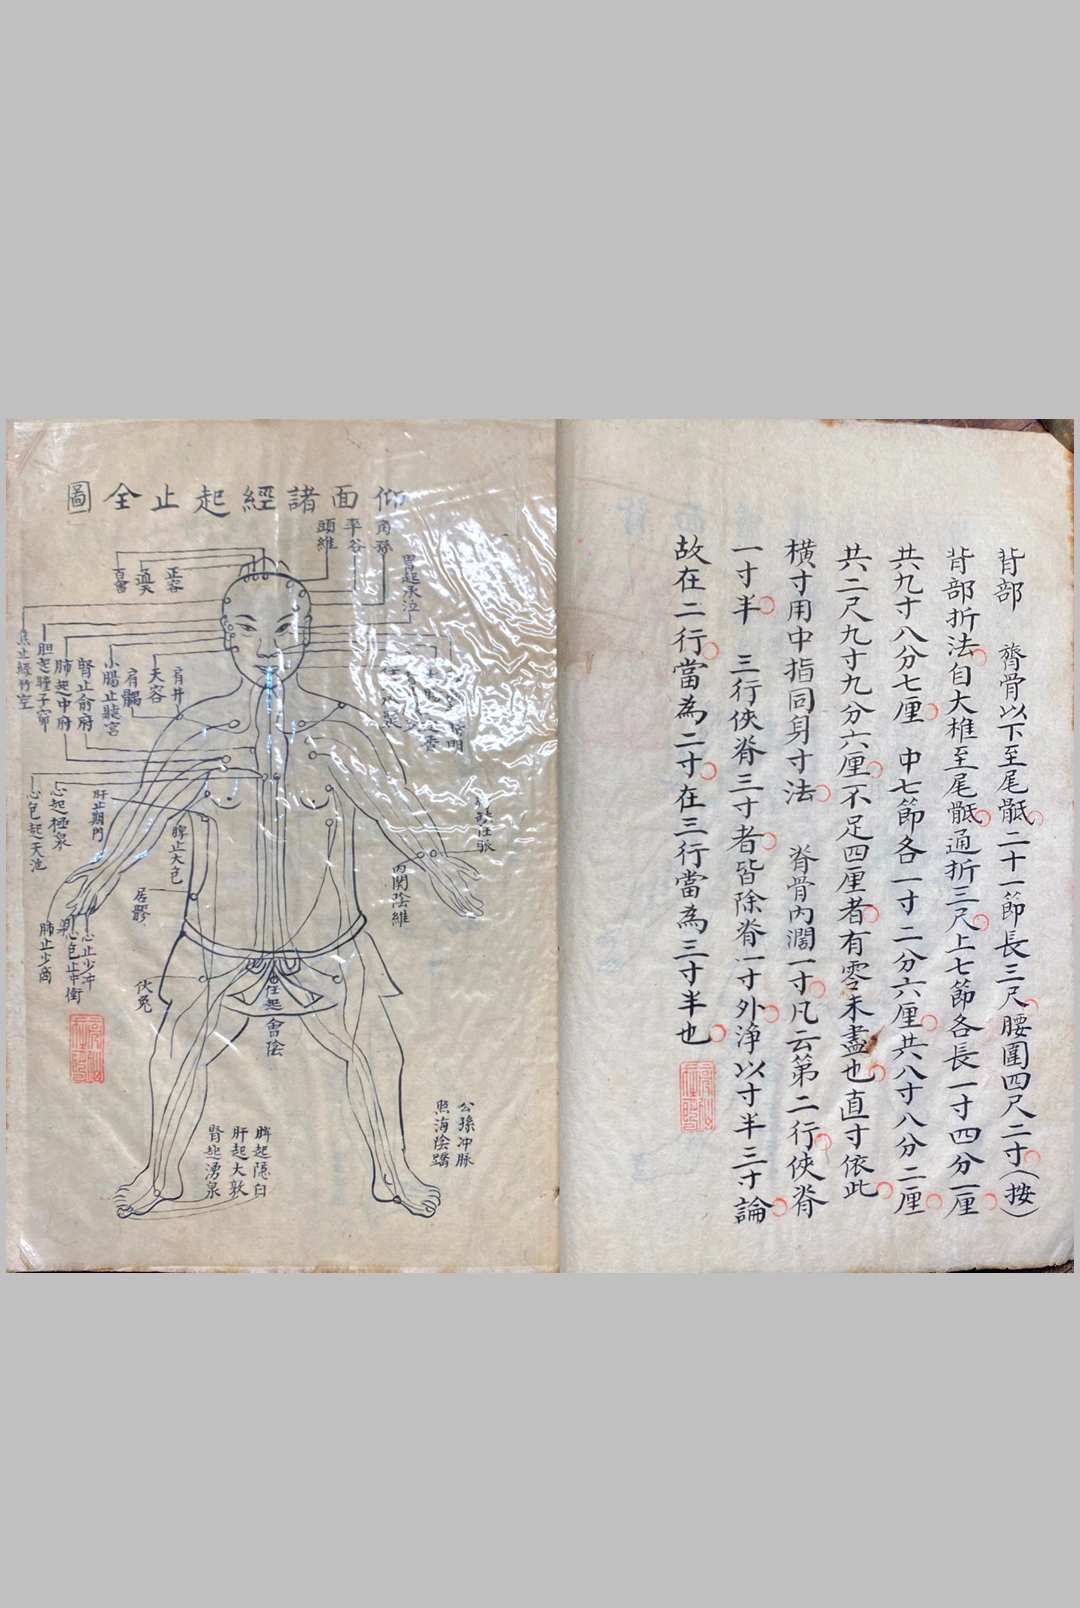 背部　膂骨以下至尾骶二十一節長三尺腰圍四尺二寸（按）
背部折法自大椎至尾骶通折三尺上七節各長一寸四分一厘
共九寸八分七厘　中七節各一寸二分六厘共八寸八分二厘
共二尺九寸九分六厘不足四厘者有零未盡也直寸依此
橫寸用中指同身寸法　脊骨內濶一寸凡云第二行俠脊
一寸半　三行俠脊三寸者皆除脊一寸外淨以寸半三寸論
故在二行當為二寸在三行當為三寸半也
仰面諸經起止全圖
頭維
率谷
胃起承泣
正容
百會
肩井
天容
肩髃
小腸止聽宮
腎止俞府
肺起中府
胆起瞳子窌
焦止絲竹空
肝止期門
心起極泉
心包起天池
脾止大包
居髎
內関陰維
心止少冲
心包止中衝
肺止少商
伏兔
任起會陰
公孫冲脉
照海陰蹻
脾起隱白
肝起大敦
腎起湧泉